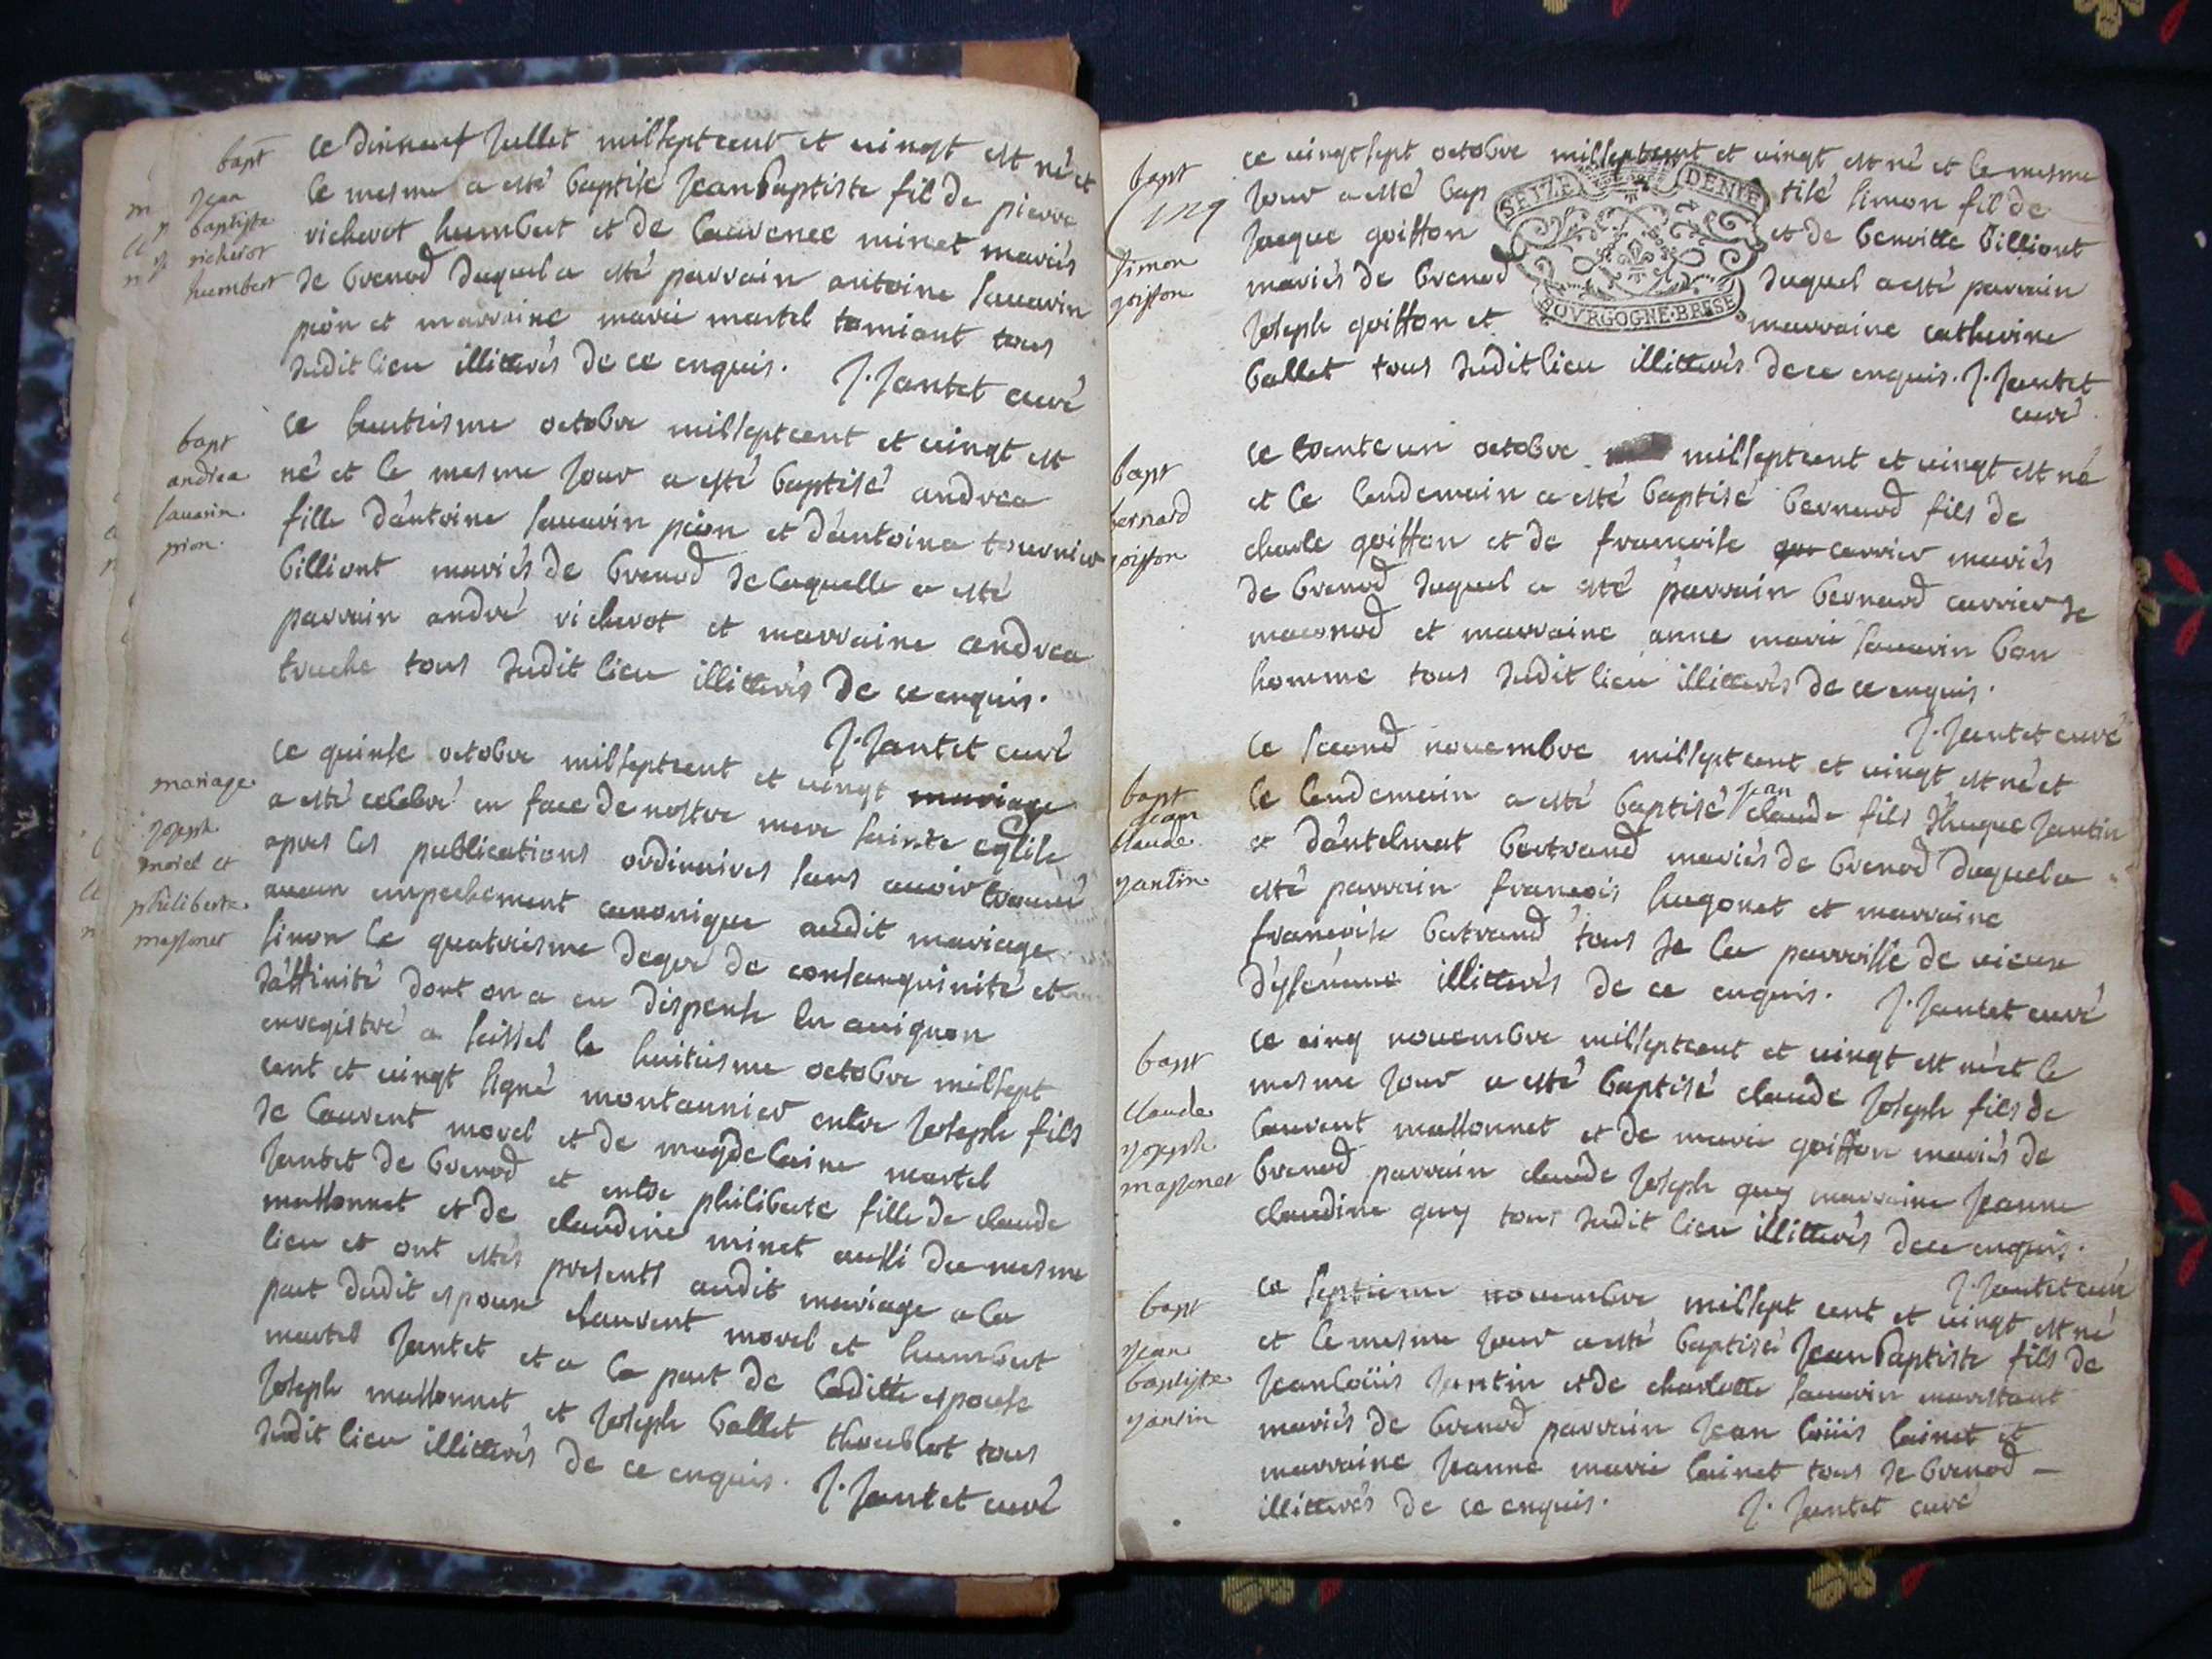 bapt
Jean
baptiste
richerot
humbert
ce dixneuf Jullet milseptcent et vingt est né et
le mesme a esté baptisé JeanBaptiste fil de pierre
richerot humbert et de laurence minet mariés
de brenod duquel a esté parrain antoine savarin
pion et marraine marie martel tamiant tous
dudit lieu illitterés de ce enquis. J. Jantet curé
bapt
andrea
savarin
pion.
ce huutiesme octobre milseptcent et vingt est
né et le mesme Jour a esté baptisé andrea
fille d'antoine savarin pion et d'antoina tournier
billiont mariés de brenod de laquelle a esté
parrain andré richerot et marraine andrea
truche tous dudit lieu illitterés de ce enquis.
J. Jantet curé
mariage
Joseph
morel et
philiberte
massonet
ce quinse octobre milseptcent et vingt mariage
a esté celebré en face de nostre mere sainte eglise
apres les publications ordinaires sans avoir trouvé
aucun empechement canonique audit mariage
sinon le quatriesme degré de consanguinité et
d'affinité dont on a eu dispense en avignon
enregistré a seissel le huitiesme octobre milsept
cent et vingt signé montaunier entre Joseph fils
de laurent morel et de magdelaine martel
Jantet de brenod et entre philiberte fille de claude
massonnet et de claudine minet aussi du mesme
lieu et ont estés presents audit mariage a la
part dudit espoux laurent morel et humbert
martel Jantet et a la part de laditte espouse
Joseph massonnet et Joseph ballet thoublet tous
dudit lieu illitterés de ce enquis. J. Jantet curé
bapt
simon
goiffon
SEIZE DENIE
BOVRGOGNE·BRESE
ce vingtsept octobre milseptcent et vingt est né et le mesme
Jour a esté bap tisé simon fil de
Jacque goiffon et de benoitte billiont
mariés de brenod duquel a esté parrain
Joseph goiffon et marraine catherine
ballet tous dudit lieu illitterés de ce enquis. J. Jantet
curé
bapt
bernard
goiffon
ce trente un octobre milseptcent et vingt est né
et le lendemain a esté baptisé bernard fils de
charle goiffon et de francoise carrier mariés
de brenod duquel a esté parrain bernard carrier de
maconod et marraine anne marie savarin bon
homme tous dudit lieu illitterés de ce enquis.
J. Jantet curé
bapt
Jean
claude
Jantin
ce second novembre milseptcent et vingt est né et
le lendemain a esté baptisé Jean claude fils d'huque Jantin
et d'antelmat bertrand mariés de brenod duquel a
esté parrain francois hugonet et marraine
francoise bertrand tous de la parroisse de vieux
d'ysenave illitterés de ce enquis. J. Jantet curé
bapt
claude
Joseph
massonet
ce cinq novembre milseptcent et vingt est né et le
mesme Jour a esté baptisé claude Joseph fils de
laurent massonnet et de marie goiffon mariés de
brenod parrain claude Joseph quy marraine Jeanne
claudine quy tous dudit lieu illitterés de ce enquis.
J. Jantet curé
bapt
Jean
baptiste
Jantin
ce septieme novembre milsept cent et vingt est né
et le mesme Jour a esté baptisé JeanBaptiste fils de
Jean loüis Jantin et de charlotte savarin marestant
mariés de brenod parrain Jean loüis lainet et
marraine Jeanne marie lainet tous de brenod
illitterés de ce enquis. J. Jantet curé